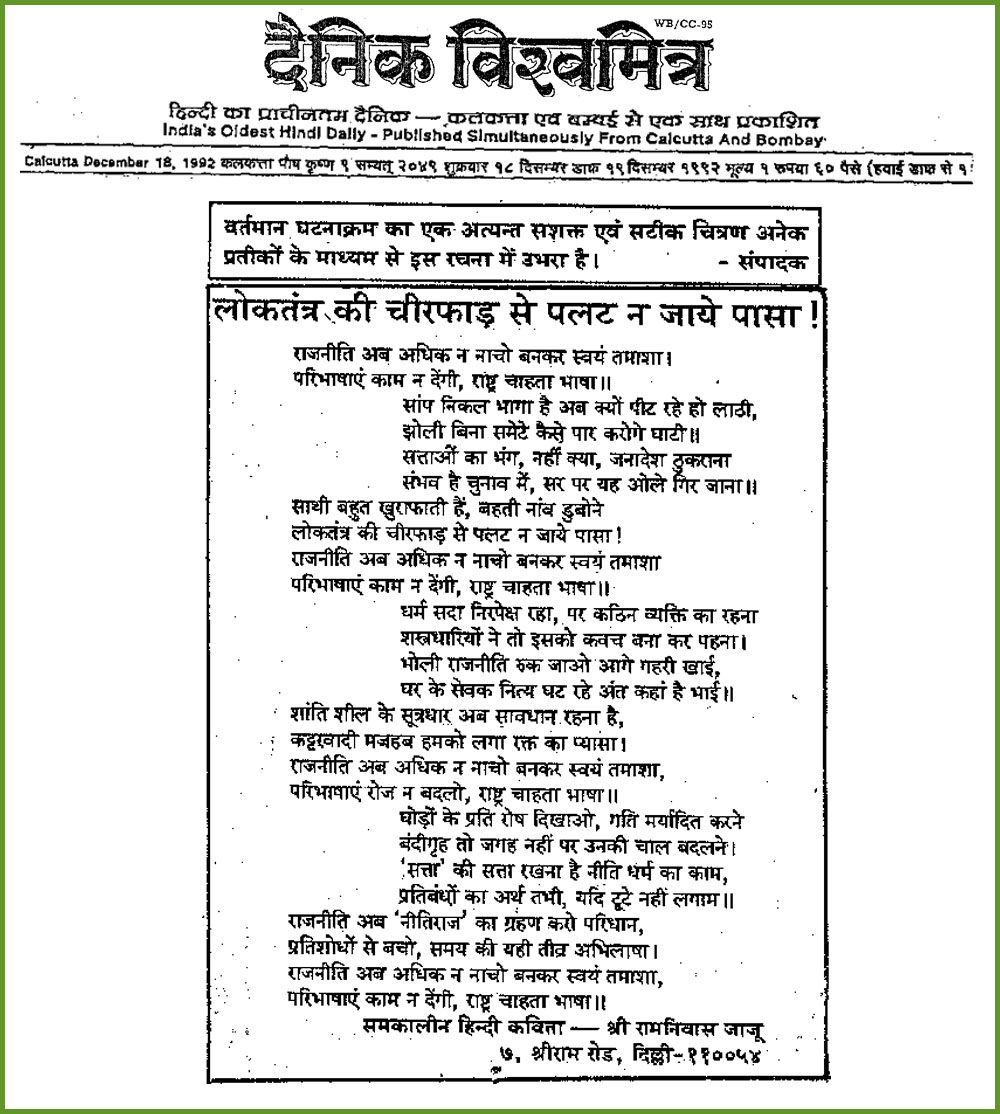 WB/CC-95
दैनिक विश्वमित्र
हिन्दी का प्राचीनतम दैनिक — कलकत्ता एवं बम्बई से एक साथ प्रकाशित
India's Oldest Hindi Daily - Published Simultaneously From Calcutta And Bombay
Calcutta December 18, 1992 कलकत्ता पौष कृष्ण ९ सम्वत् २०४९ शुक्रवार १८ दिसम्बर डाक १९ दिसम्बर १९९२ मूल्य १ रुपया ६० पैसे (हवाई डाक से १
वर्तमान घटनाक्रम का एक अत्यन्त सशक्त एवं सटीक चित्रण अनेक
प्रतीकों के माध्यम से इस रचना में उभरा है। - संपादक
लोकतंत्र की चीरफाड़ से पलट न जाये पासा !
राजनीति अब अधिक न नाचो बनकर स्वयं तमाशा।
परिभाषाएं काम न देंगी, राष्ट्र चाहता भाषा॥
सांप निकल भागा है अब क्यों पीट रहे हो लाठी,
झोली बिना समेटे कैसे पार करोगे घाटी॥
सत्ताओं का भंग, नहीं क्या, जनादेश ठुकराना
संभव है चुनाव में, सर पर यह ओले गिर जाना॥
साथी बहुत खुराफाती हैं, बहती नांव डुबोने
लोकतंत्र की चीरफाड़ से पलट न जाये पासा !
राजनीति अब अधिक न नाचो बनकर स्वयं तमाशा
परिभाषाएं काम न देंगी, राष्ट्र चाहता भाषा॥
धर्म सदा निरपेक्ष रहा, पर कठिन व्यक्ति का रहना
शस्त्रधारियों ने तो इसको कवच बना कर पहना।
भोली राजनीति रुक जाओ आगे गहरी खाई,
घर के सेवक नित्य घट रहे अंत कहां है भाई॥
शांति शील के सूत्रधार अब सावधान रहना है,
कट्टरवादी मजहब हमको लगा रक्त का प्यासा।
राजनीति अब अधिक न नाचो बनकर स्वयं तमाशा,
परिभाषाएं रोज न बदलो, राष्ट्र चाहता भाषा॥
घोड़ों के प्रति रोष दिखाओ, गति मर्यादित करने
बंदीगृह तो जगह नहीं पर उनकी चाल बदलने।
'सत्ता' की सत्ता रखना है नीति धर्म का काम,
प्रतिबंधों का अर्थ तभी, यदि टूटे नहीं लगाम॥
राजनीति अब 'नीतिराज' का ग्रहण करो परिधान,
प्रतिशोधों से बचो, समय की यही तीव्र अभिलाषा।
राजनीति अब अधिक न नाचो बनकर स्वयं तमाशा,
परिभाषाएं काम न देंगी, राष्ट्र चाहता भाषा॥
समकालीन हिन्दी कविता — श्री रामनिवास जाजू
७, श्रीराम रोड, दिल्ली-११००५४